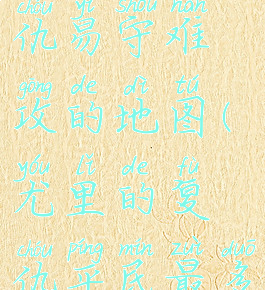 chóu yì shǒu nán
仇易守难
gōng de dì tú
攻的地图(
yóu lǐ de fù
尤里的复
chóu píng mín zuì duō
仇平民最多